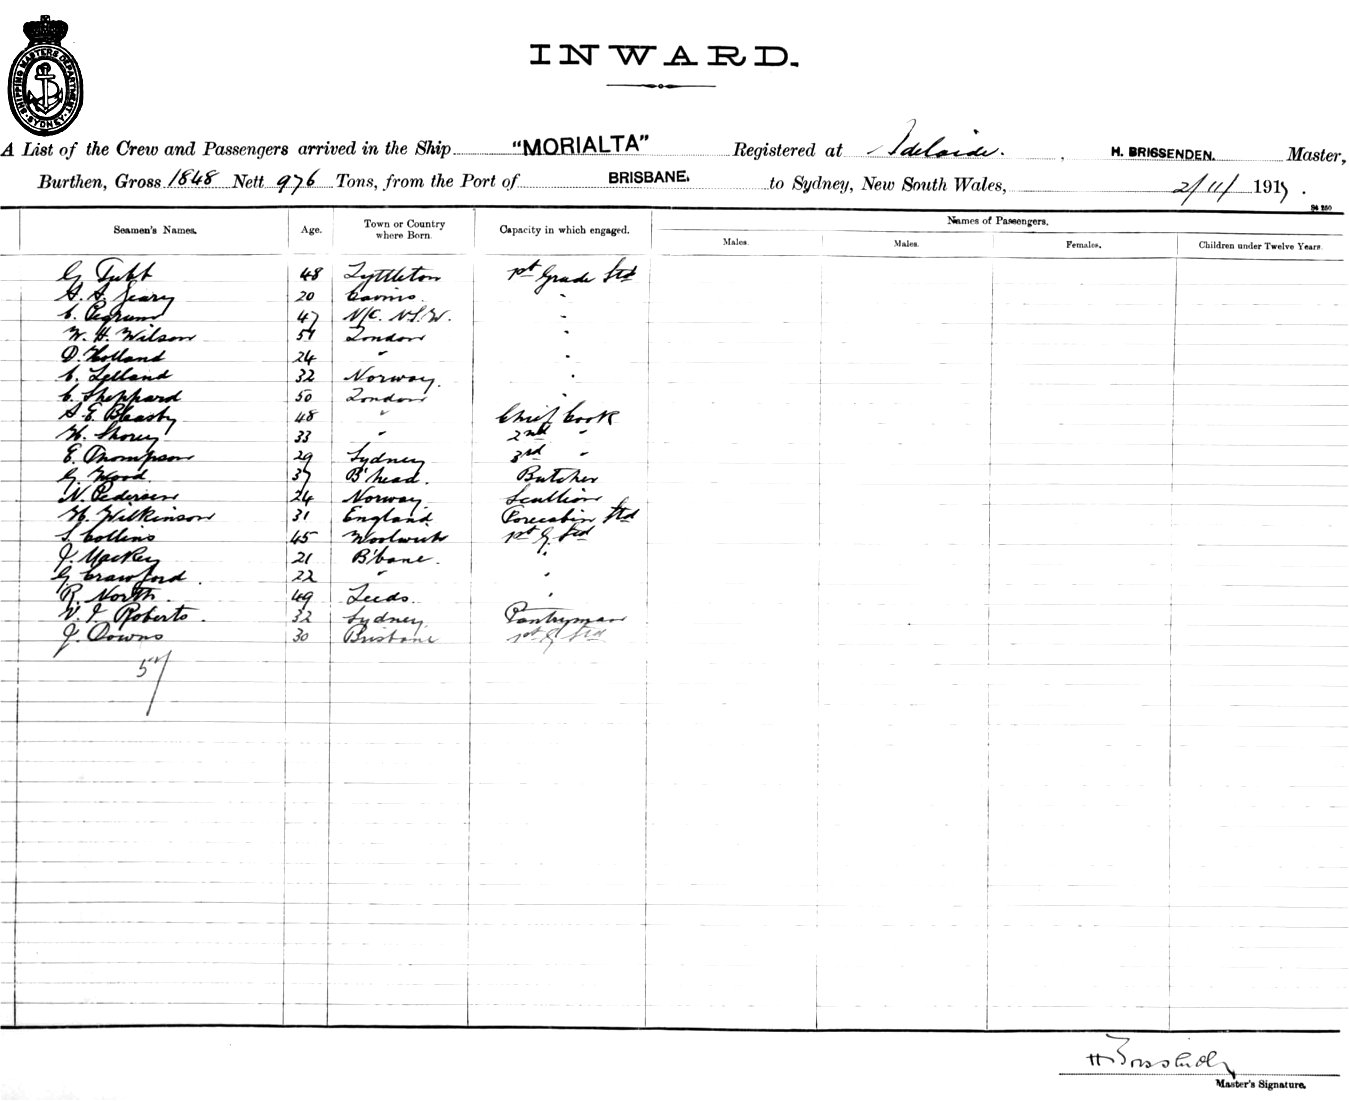 SHIPPING MASTERS DEPARTMENT SYDNEY
INWARD.
A List of the Crew and Passengers arrived in the Ship "MORIALTA" Registered at Adelaide. , H. BRISSENDEN. Master,
Burthen, Gross 1848 Nett 976 Tons, from the Port of BRISBANE. to Sydney, New South Wales, 2/11/ 1917.
Seamen's Names. Age. Town or Country where Born. Capacity in which engaged. Names of Passengers.
Males. Males. Females. Children under Twelve Years.
G Tubb 48 Lyttleton 1st Grade Std
A. A. Geary 20 "
C. Pegrum 47 N/C. N.S.W. "
W. H. Wilson 57 London "
D. Holland 24 " "
C. Lelland 32 Norway. "
C. Sheppard 50 London
A. E. Bleasby 48 " Chief Cook
H. Shorey 33 " 2nd "
E. Thompson 29 Sydney 3rd "
G. Wood. 37 B'head. Butcher
N. Pedersen 24 Norway Scullion
H. Wilkinson 31 England Forecabin Std
S. Collins 45 Woolwich 1st G. Std
J. Mackey 21 B'bane. "
G Crawford. 22 " "
R. North. 49 Leeds. "
V. I. Roberts. 32 Sydney. Pantryman
J. Downs 30 Brisbane 1st G Std
57
H Brissenden
Master's Signature.